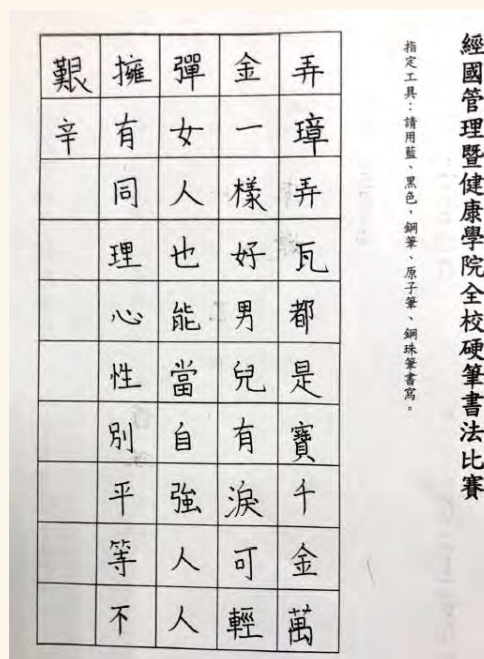 經國管理暨健康學院全校硬筆書法比賽
指定工具：請用藍、黑色，鋼筆、原子筆、鋼珠筆書寫。
弄璋弄瓦都是寶千金萬
金一樣好男兒有淚可輕
彈女人也能當自強人人
擁有同理心性別平等不
艱辛